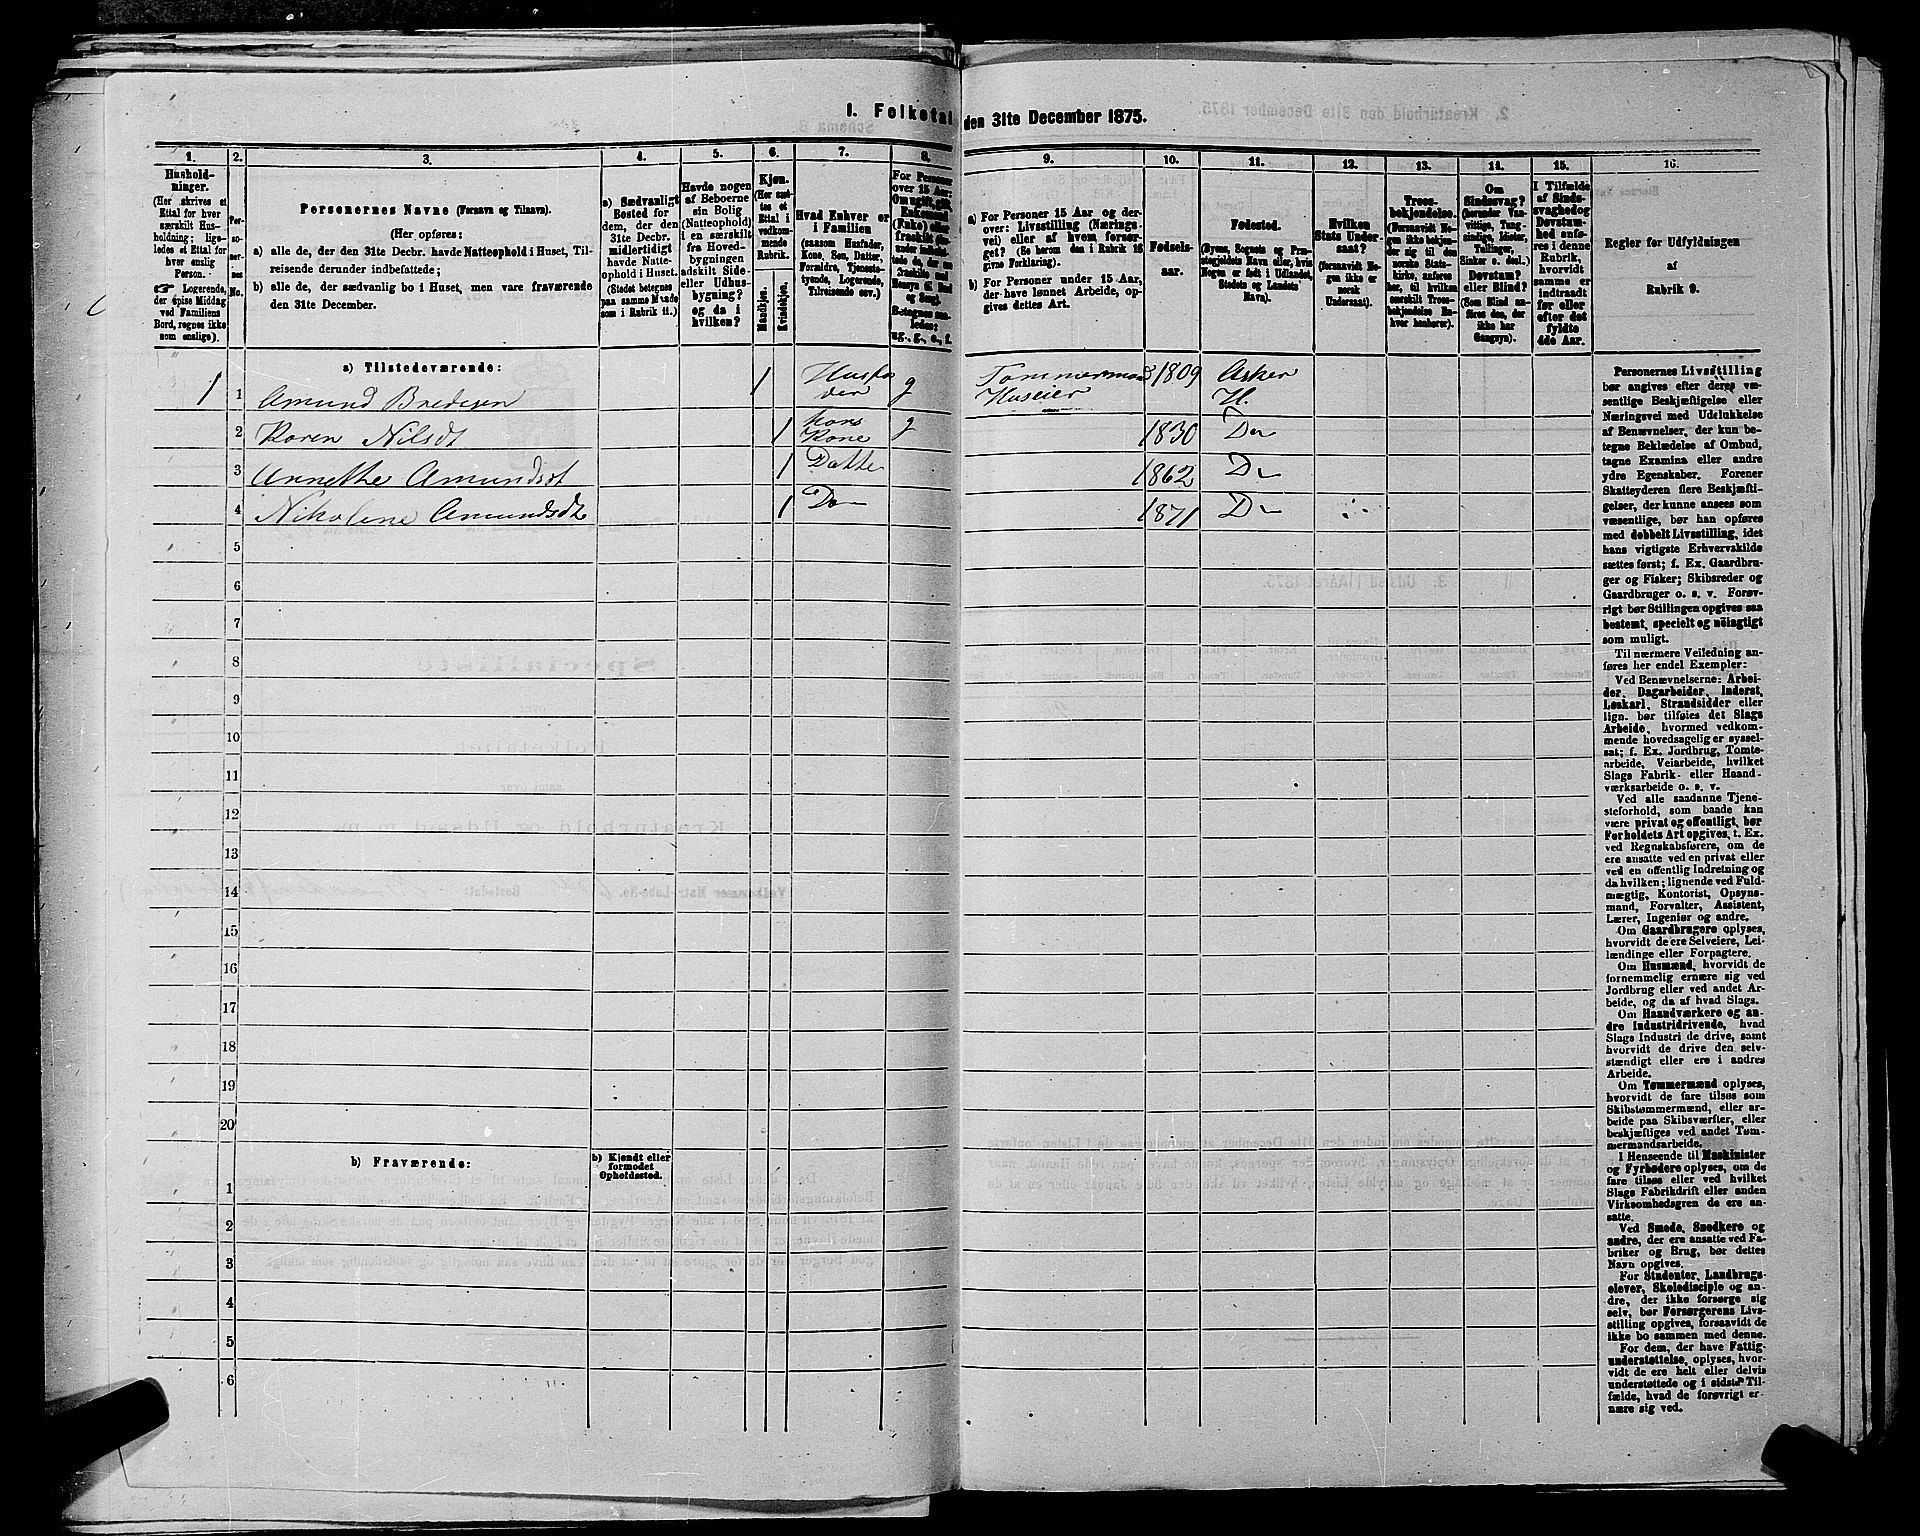 1. Folketal
den 31te December 1875.
1.
2.
3.
4.
5.
6.
7.
8.
9.
10.
11.
12.
13.
14.
15.
16.
Hushold-
ninger.
(Her skrives et
Ettal for hver
særskilt Hus-
holdning; lige-
ledes et Ettal for
hver enslig
Person.
☞ Logerende,
der spise Middag
ved Familiens
Bord, regnes ikke
som enslige).
Per-
so-
ner-
nes
No.
Personernes Navne (Fornavn og Tilnavn).
(Her opføres:
a) alle de, der den 31te Decbr. havde Natteophold i Huset, Til-
reisende derunder indbefattede;
b) alle de, der sædvanlig bo i Huset, men vare fraværende
den 31te December.
a) Sædvanligt
Bosted for
dem, der den
31te Decbr.
midlertidigt
havde Natte-
ophold i Huset.
(Stedet betegnes
paa samme Maade
som i Rubrik 11.)
Havde nogen
af Beboerne
sin Bolig
(Natteophold)
i en særskilt
fra Hoved-
bygningen
adskilt Side-
eller Udhus-
bygning?
og da i
hvilken?
Kjøn.
(Her sæt-
tes et
Ettal i
vedkom-
mende
Rubrik.
Mandkjøn.
Kvindekjøn.
Hvad Enhver er
i Familien
(saasom Husfader,
Kone, Søn, Datter,
Forældre, Tjeneste-
tyende, Logerende,
Tilreisende osv.)
For Personer
over 15 Aar:
Om ugift, gift,
Enkemand
(Enke) eller
fraskilt
Betegnes saa-
ledes:
ug., g., e., f.
a) For Personer 15 Aar og der-
over: Livsstilling (Nærings-
vei) eller af hvem forsør-
get? (Se herom den i Rubrik 16
givne Forklaring).
b) For Personer under 15 Aar,
der have lønnet Arbeide, op-
gives dettes Art.
Fødsels-
aar.
Fødested.
(Byens, Sognets og Præ-
stegjeldets Navn eller, hvis
Nogen er født i Udlandet,
Stedets og Landets
Navn).
Hvilken
Stats Under-
saat?
(forsaavidt No-
gen ikke er
norsk
Undersaat).
Troes-
bekjendelse.
(Forsaavidt No-
gen ikke bekjen-
der sig til den
norske Stats-
kirke, anføres
her, til hvilken
særskilt Troes-
bekjendelse En-
hver henhører).
Om
Sindssvag?
(herunder Van-
vittige, Tung-
sindige, Idioter,
Tullinger,
Sinker o. desl.)
Døvstum?
eller Blind?
(Som Blind an-
føres den, der
ikke har
Gangsyn).
I Tilfælde
af Sinds-
svaghed og
Døvstum-
hed anfø-
res i denne
Rubrik,
hvorvidt
samme er
indtraadt
før eller
efter det
fyldte
4de Aar.
Regler for Udfyldningen
af
Rubrik 9.
a) Tilstedeværende:
1 1 Amund Bredesen 1 Husfa
der g Tømmermand
Huseier 1809 Asker
H.
2 Karen Nilsdt 1 hans
Kone g 1830 Do
3 Annethe Amundsdt 1 Datte 1862 Do
4 Nikoline Amundsdt 1 Do 1871 Do
5
6
7
8
9
10
11
12
13
14
15
16
17
18
19
20
b) Fraværende:
b) Kjendt eller
formodet
Opholdssted.
1
2
3
4
5
6
Personernes Livsstilling
bør angives efter deres væ-
sentlige Beskjæftigelse eller
Næringsvei med Udelukkelse
af Benævnelser, der kun be-
tegne Beklædelse af Ombud,
tagne Examina eller andre
ydre Egenskaber. Forener
Skatteyderen flere Beskjæfti-
gelser, der kunne ansees som
væsentlige, bør han opføres
med dobbelt Livsstilling, idet
hans vigtigste Erhvervskilde
sættes først; f. Ex. Gaardbru-
ger og Fisker; Skibsreder og
Gaardbruger o. s. v. Forøv-
rigt bør Stillingen opgives saa
bestemt, specielt og nöiagtigt
som muligt.
Til nærmere Veiledning an-
føres her endel Exempler:
Ved Benævnelserne: Arbei-
der, Dagarbeider, Inderst,
Løskarl, Strandsidder eller
lign. bør tilføies det Slags
Arbeide, hvormed vedkom-
mende hovedsagelig er syssel-
sat; f. Ex. Jordbrug, Tomte-
arbeide, Veiarbeide, hvilket
Slags Fabrik- eller Haand-
værksarbeide o. s. v.
Ved alle saadanne Tjene-
steforhold, som baade kan
være privat og offentligt, bør
Forholdets Art opgives, t. Ex.
ved Regnskabsførere, om de
ere ansatte ved en privat eller
ved en offentlig Indretning og
da hvilken; lignende ved Fuld-
mægtig, Kontorist, Opsyns-
mand, Forvalter, Assistent,
Lærer, Ingeniør og andre.
Om Gaardbrugere oplyses,
hvorvidt de ere Selveiere, Lei-
lændinge eller Forpagtere.
Om Husmænd, hvorvidt de
fornemmelig ernære sig ved
Jordbrug eller ved andet Ar-
beide, og da af hvad Slags.
Om Haandværkere og an-
dre Industridrivende, hvad
Slags Industri de drive, samt
hvorvidt de drive den selv-
stændigt eller ere i andres
Arbeide.
Om Tømmermænd oplyses,
hvorvidt de fare tilsøs som
Skibstømmermænd, eller ar-
beide paa Skibsværfter, eller
beskjæftiges ved andet Tøm-
mermandsarbeide.
I Henseende til Maskinister
og Fyrbødere oplyses, om de
fare tilsøs eller ved hvilket
Slags Fabrikdrift eller anden
Virksomhedsgren de ere an-
satte.
Ved Smede, Snedkere og
andre, der ere ansatte ved Fa-
briker og Brug, bør dettes
Navn opgives.
For Studenter, Landbrugs-
elever, Skoledisciple og an-
dre, der ikke forsørge sig
selv, bør Forsørgerens Livs-
stilling opgives, forsaavidt de
ikke bo sammen med denne.
For dem, der have Fattig-
understøttelse, oplyses, hvor-
vidt de ere helt eller delvis
understøttede og i sidste Til-
fælde, hvad de forøvrigt er-
nære sig ved.